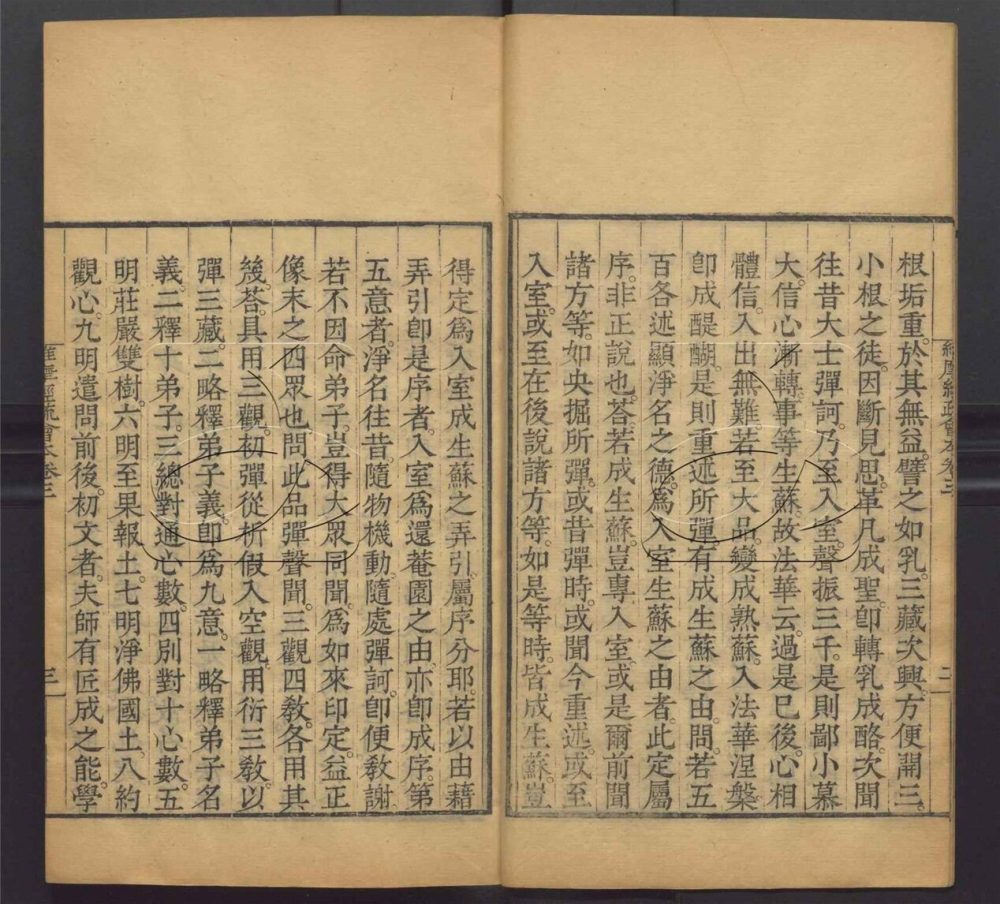 根垢重。於其無益。譬之如乳。三藏次興。方便開三。
小根之徒。因斷見思。革凡成聖。卽轉乳成酪。次聞
往昔大士彈訶。乃至入室。聲振三千。是則鄙小慕
大。信心漸轉。事等生蘇。故法華云。過是已後。心相
體信。入出無難。若至大品。變成熟蘇。入法華涅槃。
卽成醍醐。是則重述所彈。有成生蘇之由。問。若五
百各述。顯淨名之德。爲入室生蘇之由者。此定屬
序。非正說也。荅。若成生蘇。豈專入室。或是爾前聞
諸方等。如央掘所彈。或昔彈時。或聞今重述。或至
入室。或至在後說諸方等。如是等時。皆成生蘇。豈
二
得定爲入室成生蘇之弄引。屬序分耶。若以由藉
弄引卽是序者。入室爲還菴園之由。亦卽成序。第
五意者。淨名往昔。隨物機動。隨處彈訶。卽便教謝。
若不因命弟子。豈得大眾同聞。爲如來印定。益正
像末之四眾也。問。此品彈聲聞。三觀四教。各用其
幾。荅。具用三觀。初彈從析假入空觀。用衍三教。以
彈三藏。二略釋弟子義。卽爲九意。一略釋弟子名
義。二釋十弟子。三總對通心數。四別對十心數。五
明莊嚴雙樹。六明至果報土。七明淨佛國土。八約
觀心。九明遣問前後。初文者。夫師有匠成之能。學
維摩經疏會本卷三
三